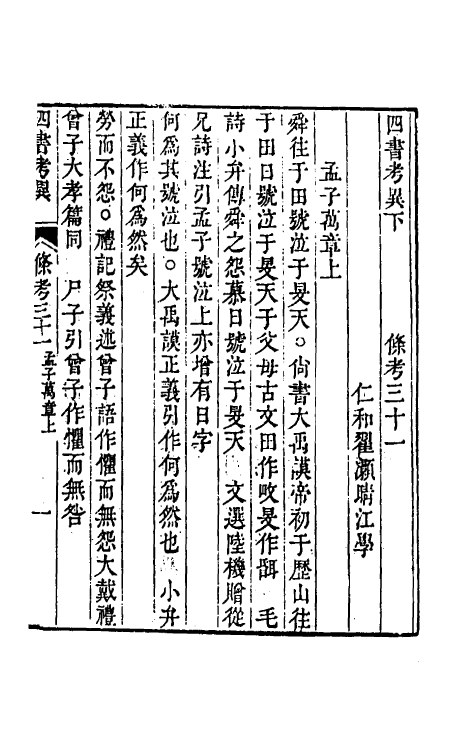 四書考異下　條考三十一
仁和翟灝晴江學
孟子萬章上
舜往于田號泣于旻天○尙書大禹謨帝初于歷山往
于田日號泣于旻天于父母古文田作畋旻作㫘　毛
詩小弁傳舜之怨慕日號泣于旻天　文選陸機贈從
兄詩注引孟子號泣上亦增有日字
何爲其號泣也○大禹謨正義引作何爲然也　小弁
正義作何爲然矣
勞而不怨○禮記祭義述曾子語作懼而無怨大戴禮
曾子大孝篇同　尸子引曾子作懼而無咎
四書考異　條考三十一　孟子萬章上　一